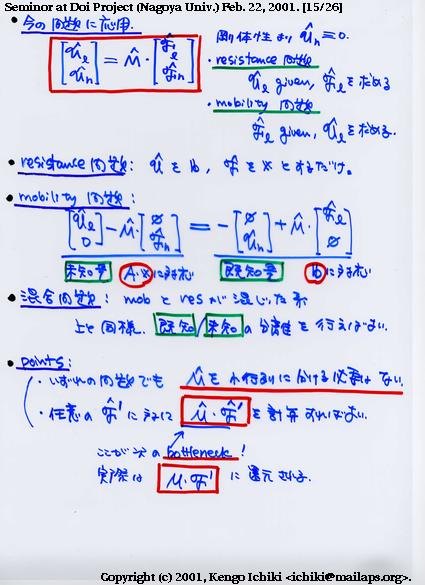 Seminar at Doi Project (Nagoya Univ.) Feb. 22, 2001. [15/26]
• 今の問題に応用.
[û_ℓ û_n] = M̂ · [F̂_ℓ F̂_n]
剛体性より û_n = 0.
• resistance 問題
û_ℓ given, F̂_ℓ を求める
• mobility 問題
F̂_ℓ given, û_ℓ を求める.
• resistance 問題: û を b, F̂ を x とするだけ。
• mobility 問題:
[û_ℓ 0] - M̂ · [∅ F̂_n] = -[∅ û_n] + M̂ · [F̂_ℓ ∅]
未知量 A·x に対応 既知量 b に対応
• 混合問題: mob と res が混じった系
上と同様. 既知/未知 の分離を行えばよい.
• points:
・いずれの問題でも M̂ を 小行列に分ける必要は ない.
・任意の F̂' に対して M̂·F̂' を計算すればよい.
ここが bottleneck!
実際は M·F' に還元される.
Copyright (c) 2001, Kengo Ichiki <ichiki@mailaps.org>.